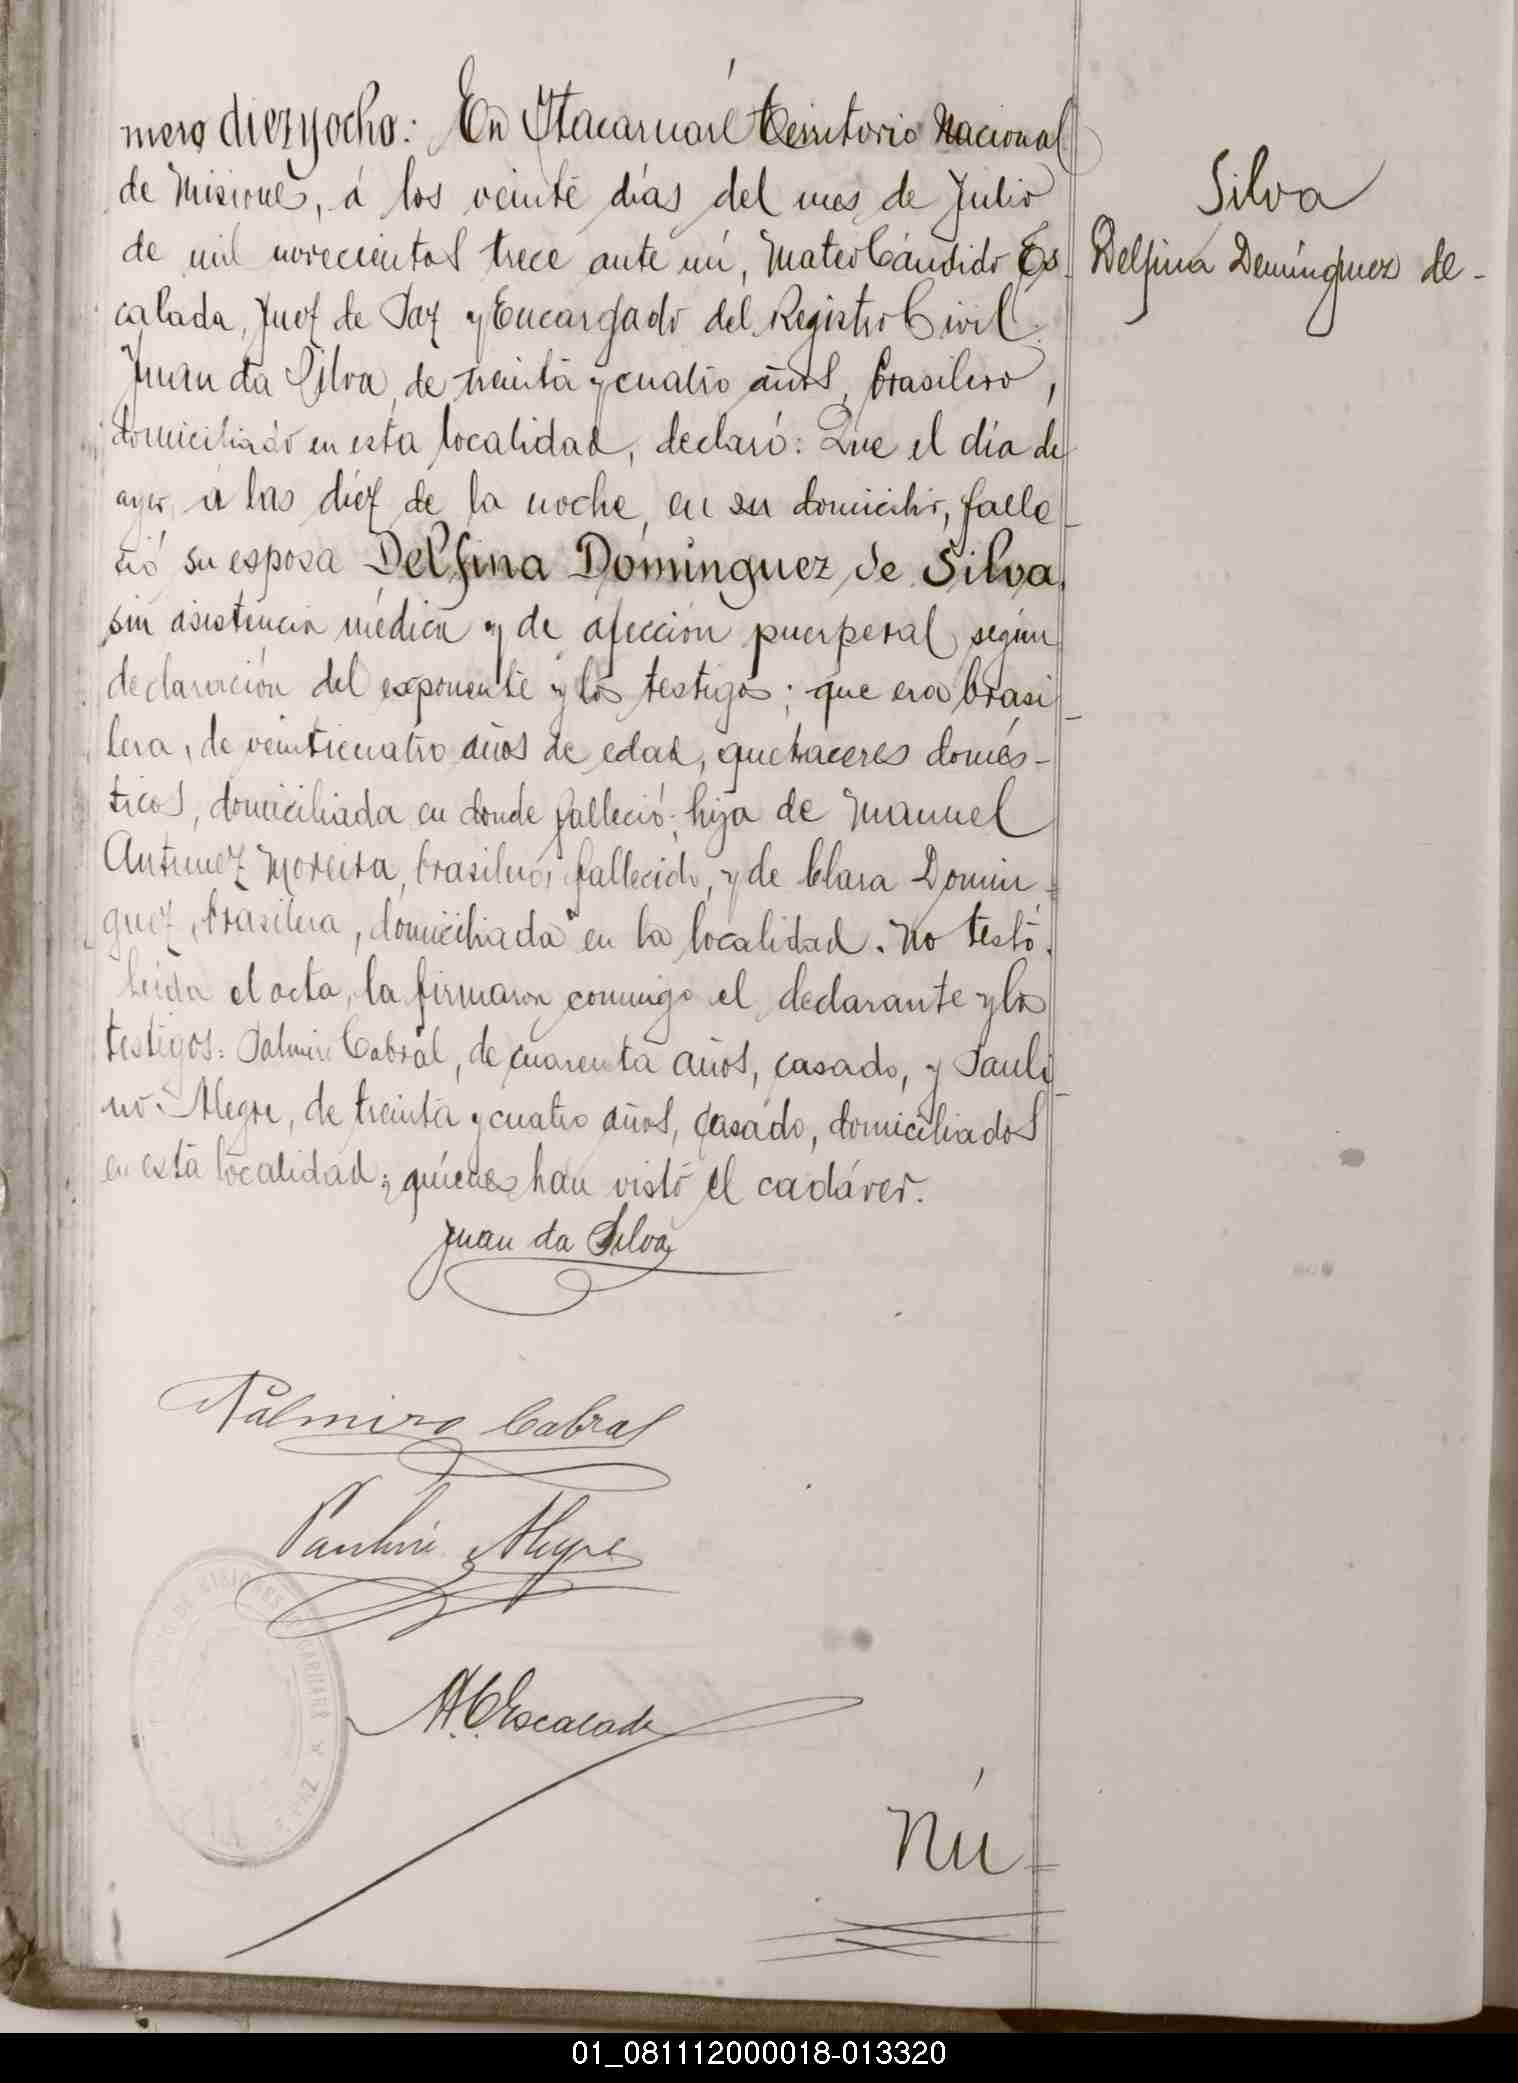 mero diez y ocho: En Itacaruaré Territorio Nacional
de Misiones, á los veinte días del mes de Julio
de mil novecientos trece ante mí, Mateo Cándido Es-
calada, Juez de Paz y Encargado del Registro Civil.
Juan da Silva, de treinta y cuatro años, brasilero,
domiciliado en esta localidad, declaró: Que el día de
ayer, á las diez de la noche, en su domicilio, falle-
ció su esposa Delfina Domínguez de Silva,
sin asistencia médica y de afección puerperal según
declaración del exponente y los testigos; que era brasi-
lera, de veinticuatro años de edad, quehaceres domés-
ticos, domiciliada en donde falleció; hija de Manuel
Antunez Moreira, brasilero, fallecido, y de Clara Domin-
guez, brasilera, domiciliada en la localidad. No testó.
Leída el acta, la firmaron conmigo el declarante y los
testigos: Palmiro Cabral, de cuarenta años, casado, y Pauli-
no Alegre, de treinta y cuatro años, casado, domiciliados
en esta localidad; quienes han visto el cadáver.
Juan da Silva
Palmiro Cabral
Paulino Alegre
M.C. Escalada
Nú-
Silva
Delfina Domínguez de-
01_081112000018-013320